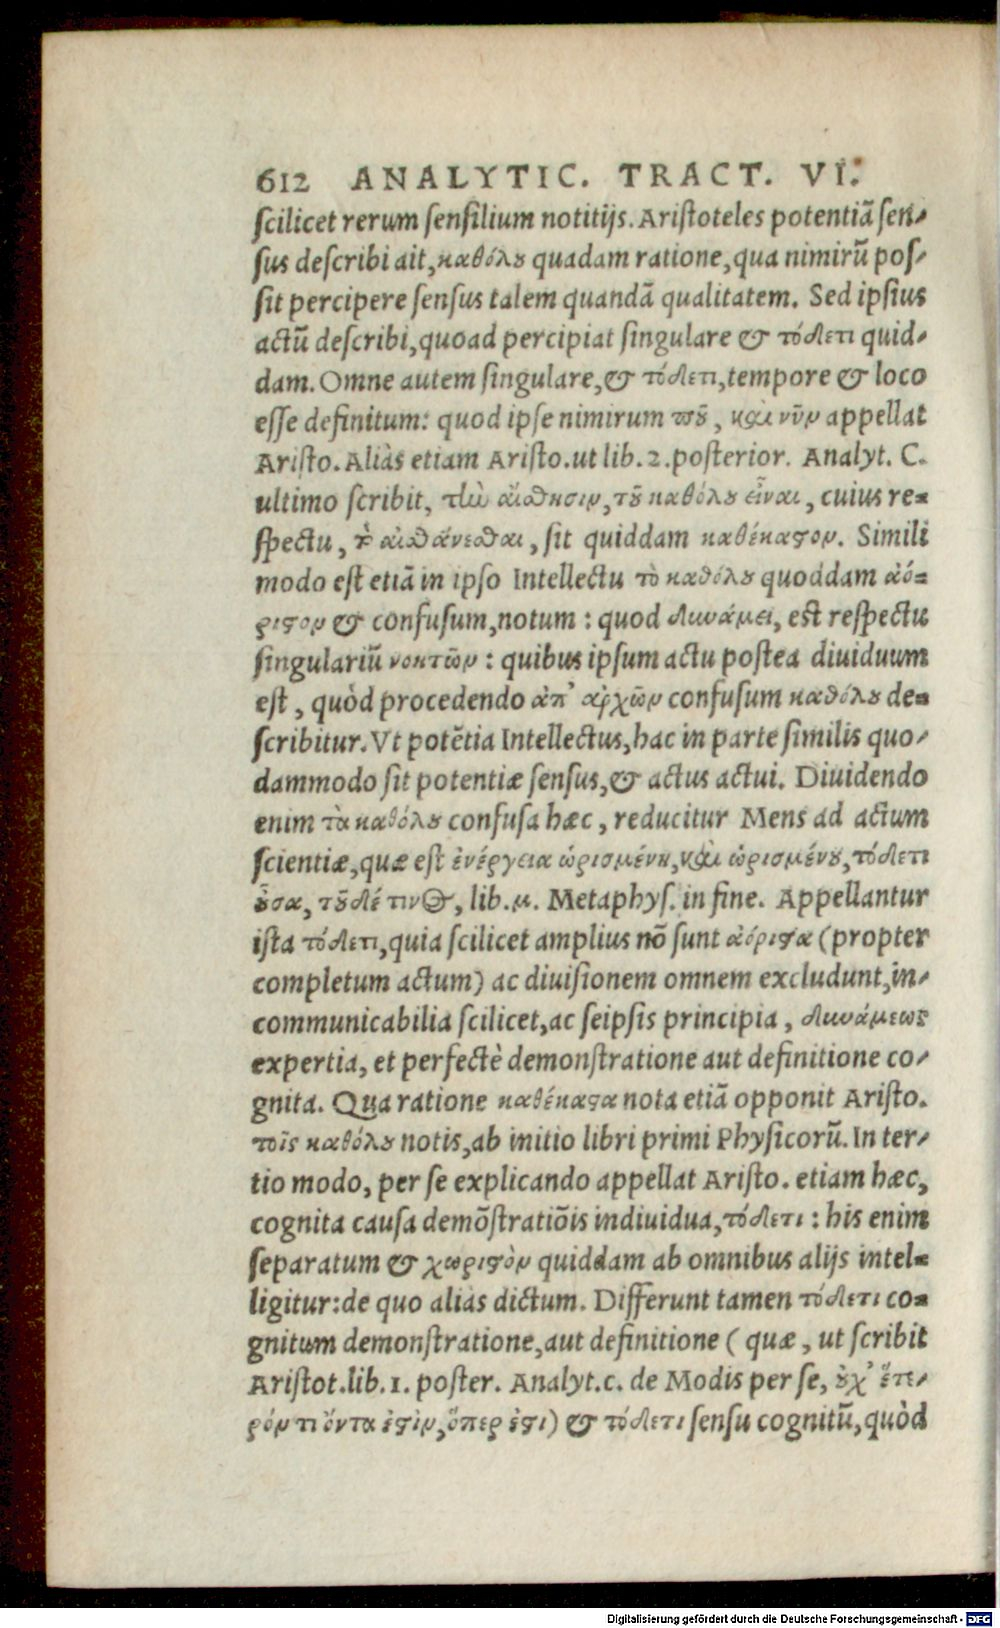 612 ANALYTIC. TRACT. VI.
scilicet rerum sensilium notitijs. Aristoteles potentiã sen-
sus describi ait, καθόλȣ quadam ratione, qua nimirũ pos-
sit percipere sensus talem quandã qualitatem. Sed ipsius
actũ describi, quoad percipiat singulare & τόδετι quid-
dam. Omne autem singulare, & τόδετι, tempore & loco
esse definitum: quod ipse nimirum πȣ͂, καὶ νῦν appellat
Aristo. Aliàs etiam Aristo. ut lib. 2. posterior. Analyt. C.
ultimo scribit, τἠν αἴσθησιν, τȣ͂ καθόλȣ εἶναι, cuius re-
spectu, τὸ αἰσθάνεσθαι, sit quiddam καθέκαστον. Simili
modo est etiã in ipso Intellectu τὸ καθόλȣ quoddam ἀό-
ριστον & confusum, notum: quod δυνάμει, est respectu
singulariũ νοητῶν: quibus ipsum actu postea diuiduum
est, quòd procedendo ἀπ' ἀρχῶν confusum καθόλȣ de-
scribitur. Vt potẽtia Intellectus, hac in parte similis quo-
dammodo sit potentiæ sensus, & actus actui. Diuidendo
enim τὰ καθόλȣ confusa hæc, reducitur Mens ad actum
scientiæ, quæ est ἐνέργεια ὡρισμένη, καὶ ὡρισμένȣ, τόδετι
ȣ͂̓σα, τȣ͂δέ τινος, lib. μ. Metaphys. in fine. Appellantur
ista τόδετι, quia scilicet amplius nõ sunt ἀόριστα (propter
completum actum) ac diuisionem omnem excludunt, in-
communicabilia scilicet, ac seipsis principia, δυνάμεως
expertia, et perfectè demonstratione aut definitione co-
gnita. Qua ratione καθέκαστα nota etiã opponit Aristo.
τοῖς καθόλȣ notis, ab initio libri primi Physicorũ. In ter-
tio modo, per se explicando appellat Aristo. etiam hæc,
cognita causa demõstratiõis indiuidua, τόδετι: his enim
separatum & χωριστὸν quiddam ab omnibus alijs intel-
ligitur: de quo alias dictum. Differunt tamen τόδετι co-
gnitum demonstratione, aut definitione ( quæ, ut scribit
Aristot. lib. 1. poster. Analyt. c. de Modis per se, ȣ̓χ' ἕτε-
ρόν τι ὄντα ἐστὶν, ὅπερ ἐστι) & τόδετι sensu cognitũ, quòd
Digitalisierung gefördert durch die Deutsche Forschungsgemeinschaft - DFG